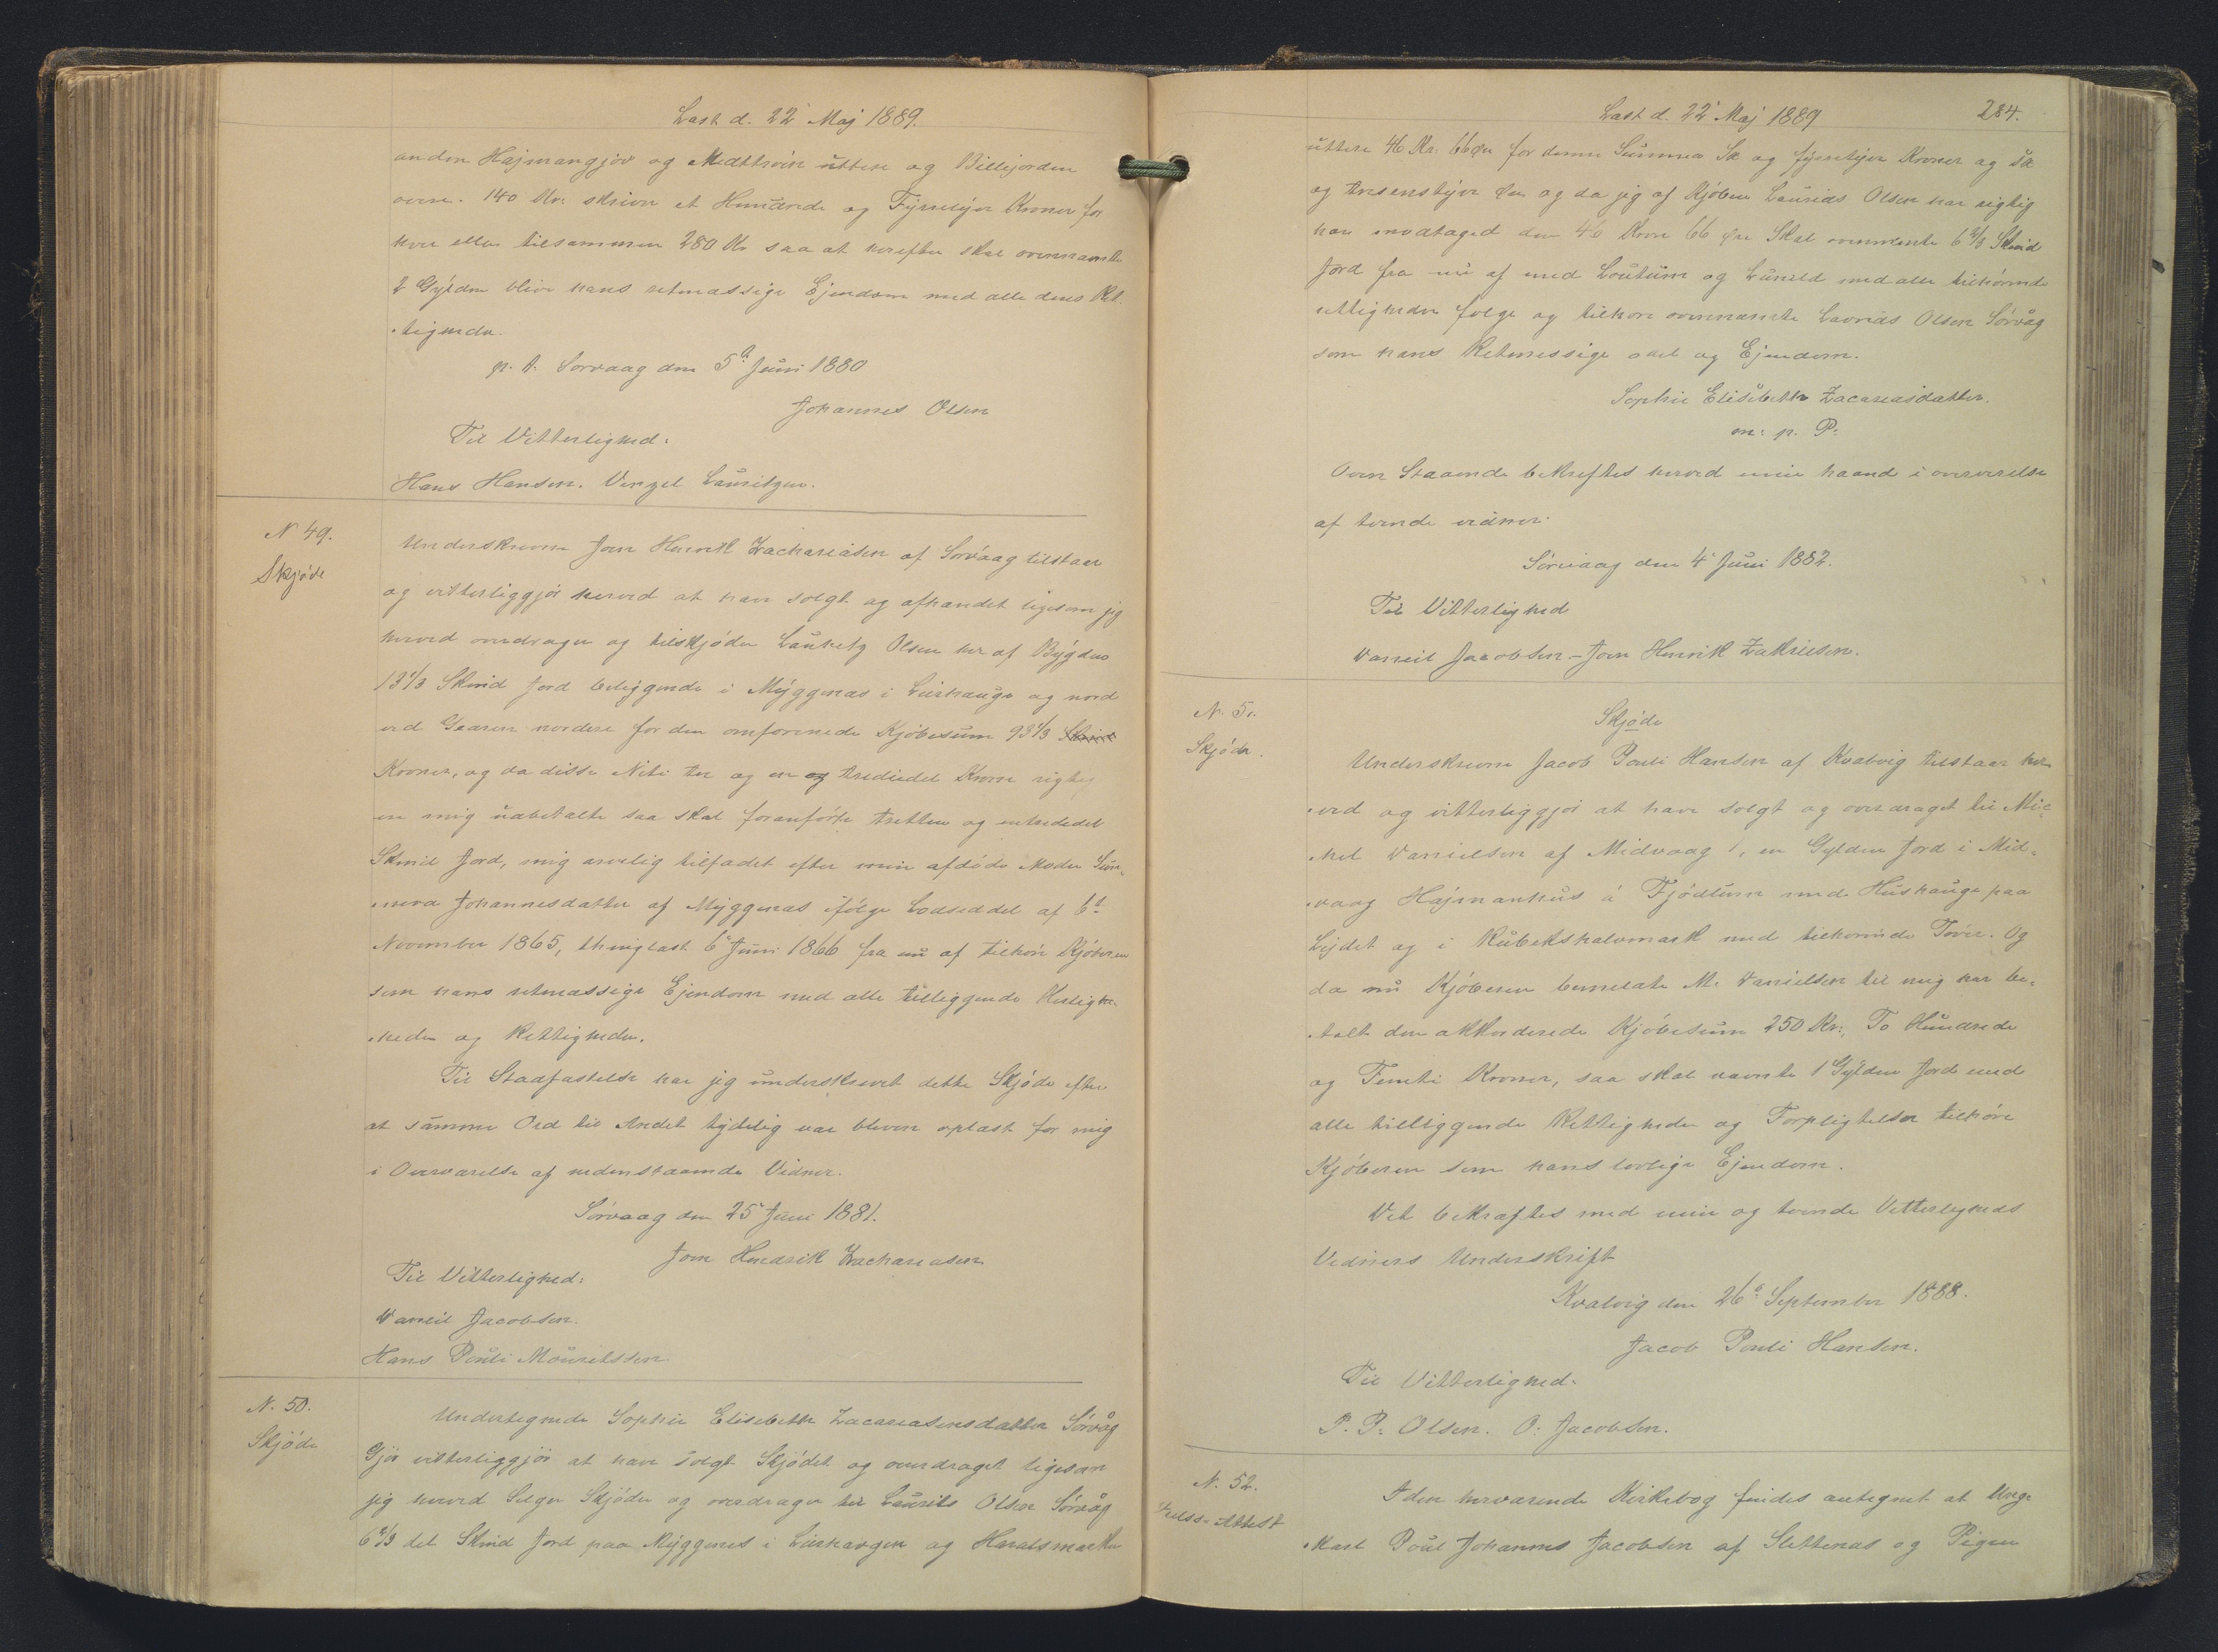 Læst d. 22' Maj 1889.
anden Hajmangjov og Midttroin uttere og Billejorden
overe. 140 Kr: skriver et Hundrede og Fyrretyve Kroner for
hver eller tilsammen 280 Kr saa at herefter skal ovennævnte
2 Gylden blive hans retmæssige Ejendom med alle dens Ret-
tigheder.
p. t. Sorvaag den 5te Juni 1880
Johannes Olsen
Til Vitterlighed:
Hans Hansen. Venzel Lauritzen.
N 49.
Skjøde
Underskrevne Joen Henrik Zachariasen af Sorvaag tilstaar
og vitterliggjør herved at have solgt og afhændet ligesom jeg
herved overdrager og tilskjøder Lauritz Olsen her af Bygden
13 1/3 Skind Jord beliggende i Myggenæs i Lirhauge og nord
ved Gaaren nordere for den omforenede Kjøbesum 93 1/3 Skind
Kroner, og da disse Niti tre og en og trediedel Krone rigtig
er mig udbetalte saa skal foranførte tretten og entrededel
Skind Jord, mig arvelig tilfadet efter min afdøde Moder Sun-
neva Johannesdatter af Myggenæs ifølge Lodseddel af 6te
November 1865, thinglæst 6' Juni 1866 fra nu af tilhøre Kjøberen
som hans retmæssige Ejendom med alle tilliggende Herlighe-
heder og Rettigheder.
Til Stadfæstelse har jeg underskrevet dette Skjøde efter
at samme Ord til Andet tydelig var bleven oplæst for mig
i Overværelse af nedenstaaende Vidner.
Sörvaag den 25' Juni 1881.
Joen Hendrik Zachariasen
Til Vitterlighed:
Daniel Jacobsen.
Hans Pouli Mouritssen
N. 50.
Skjøde
Undertegnede Sophie Elisebeth Zacariasensdatter Sörvåg
Gjör vitterliggjör at have solgt Skjödet og overdraget ligesom
jeg herved Selger Skjöder og overdrager til Laurits Olsen Sörvåg
6 2/3 del Skind Jord paa Myggenes i Lirhavgen og Haratsmarken
Læst d. 22' Maj 1889
284.
uttere 46 Kr. 66 Øre for denne Summa Sex og fyrretyve Kroner og sex
og tresenstyve Øre og da jeg af Kjöber Laurids Olsen har rigtig
har modtaged den 46 Krone 66 Øre Skal ovennevnte 6 2/3 Skind
Jord fra nu af med Loutum og Lunild med alle tilhörende
rettigheder folge og tilhore ovennamte Lavrids Olsen Sörvåg
som hans Retmessige odel og Ejendom.
Sophie Elisebeth Zacariasdatter.
m: p. P:
Oven Staaende bekreftes herved min haand i oververelse
af tvende vidner.
Sörvaag den 4' Juni 1882.
Til Vitterlighed
Daniel Jacobsen - Joen Henrik Zakrisen.
N. 51.
Skjøde.
Skjøde
Underskrevne Jacob Pouli Hansen af Kvalvig tilstaar her-
ved og vitterliggjør at have solgt og overdraget til Mic-
hel Danielsen af Midvaag 1, en Gylden Jord i Mid-
vaag Hajmanhus á Fjødlum med Hushauge paa
Lijdet og i Kúbekshalvmark med tilhørende Tover. Og
da nu Kjøberen bemeldte M. Danielsen til mig har be-
talt den akkorderede Kjøbesum 250 Kr:, To Hundrede
og Femti Kroner, saa skal nævnte 1 Gylden Jord med
alle tilliggende Rettigheder og Forpligtelser tilhøre
Kjøberen som hans lovlige Ejendom.
Det bekræftes med min og tvende Vitterligheds
Vidners Underskrift
Kvalvig den 26de September 1888.
Jacob Pouli Hansen.
Til Vitterlighed.
P. P: Olsen. O: Jacobsen.
N. 52.
Attest
I den herværende Kirkebog findes antegnet at Unge
Karl Poul Johannes Jacobsen af Slettenæs og Pigen